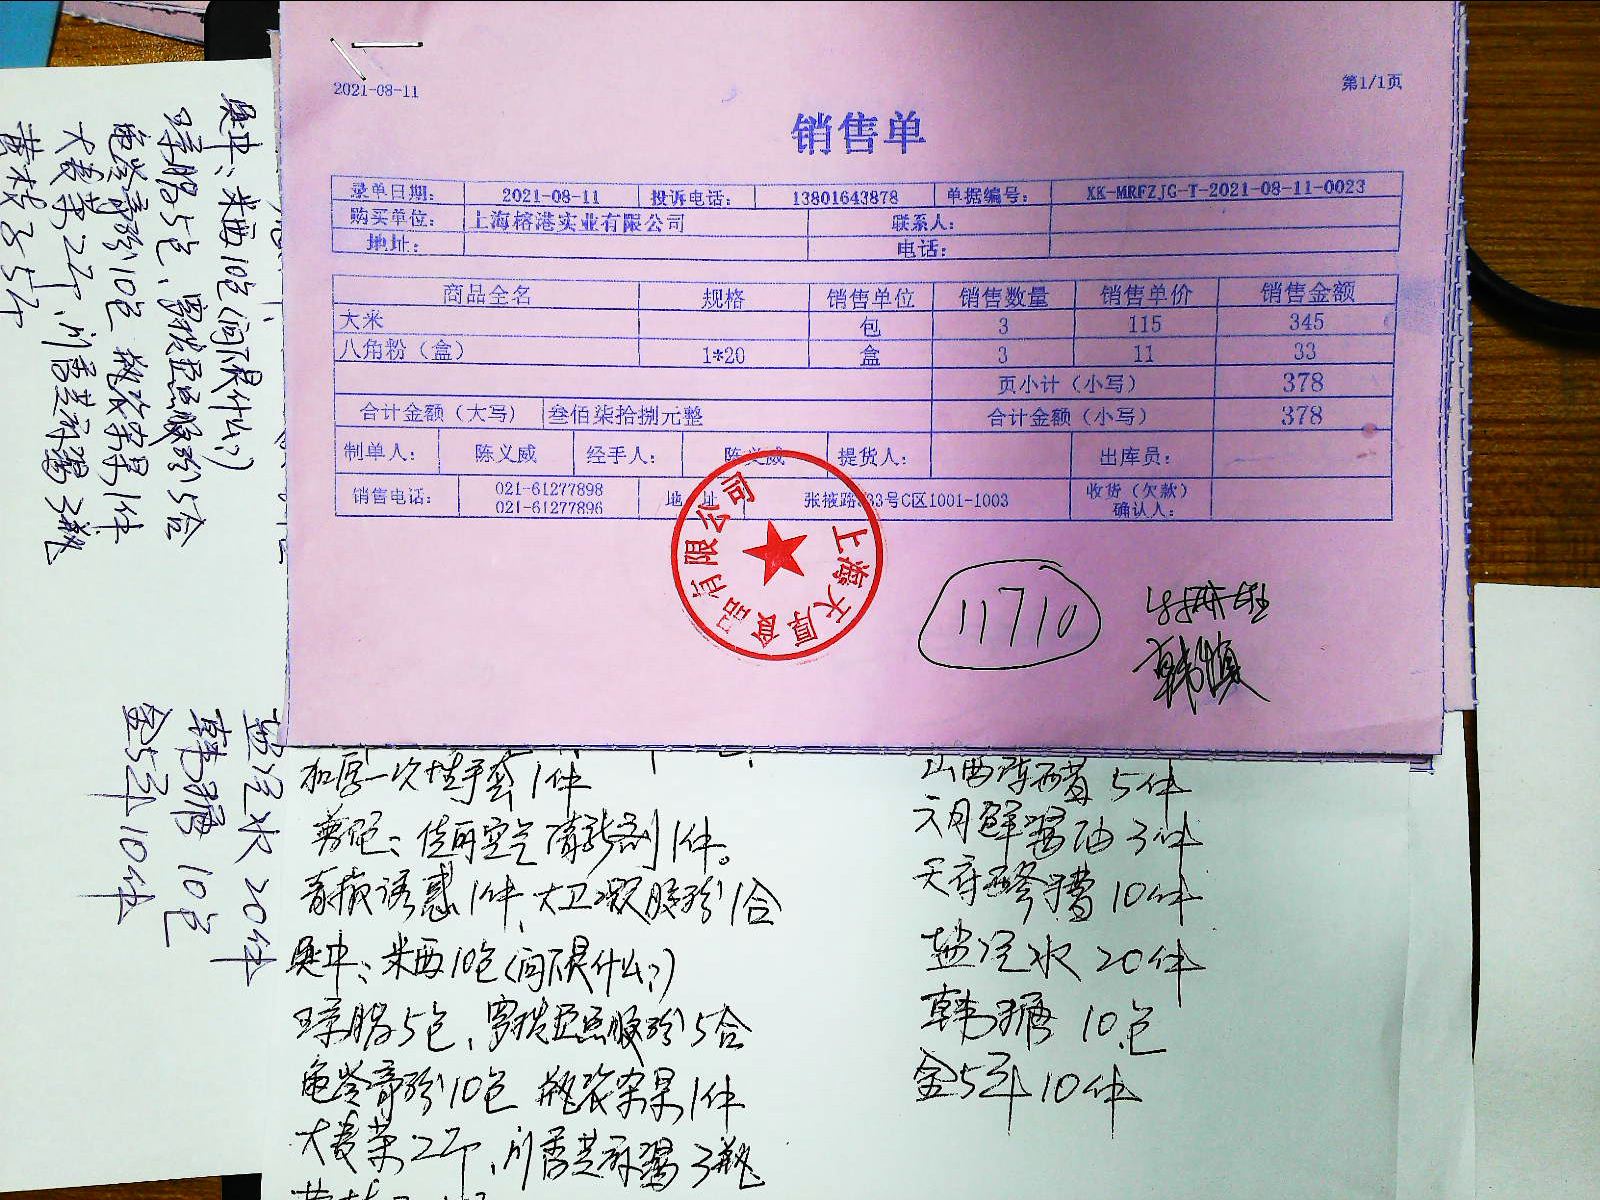 2021-08-11
第1/1页
销售单
录单日期: 2021-08-11 投诉电话: 13801643878 单据编号: XK-MRFZJG-T-2021-08-11-0023
购买单位: 上海榕港实业有限公司 联系人:
地址: 电话:
商品全名 规格 销售单位 销售数量 销售单价 销售金额
大米 包 3 115 345
八角粉（盒） 1*20 盒 3 11 33
页小计（小写） 378
合计金额（大写） 叁佰柒拾捌元整 合计金额（小写） 378
制单人: 陈义威 经手人: 陈义威 提货人: 出库员:
销售电话: 021-61277898 021-61277896 地 址 张掖路 33号C区1001-1003 收货（欠款）确认人:
上海天厚食品有限公司
11710
韩慎
一次性手套1件
佳丽空气清新剂1件。
青椒诱惑1件、大卫凝胶粉1合
吴中: 米西10包(问下是什么?)
琼脂5包、 5合
龟苓膏粉10包 瓶装杂果1件
大麦茶2斤、川香芝麻酱3瓶
山西陈醋5件
六月鲜酱油3件
天府醪糟10件
盐汽水20件
韩糖10包
金5年10件
吴中: 米西10包(问下是什么?)
琼脂5包、 5合
龟苓膏粉10包 瓶装杂果1件
大麦茶2斤、川香芝麻酱3瓶
黄 5斤
盐汽水20件
韩糖10包
金5年10件